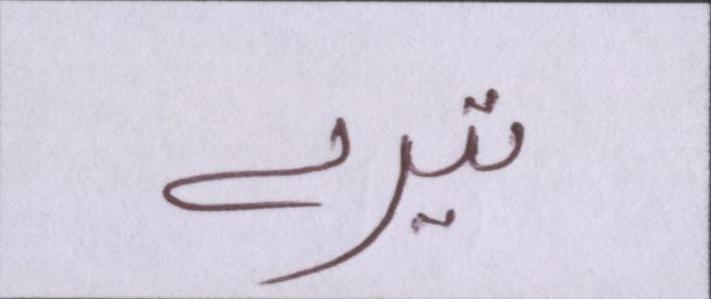 تیرے